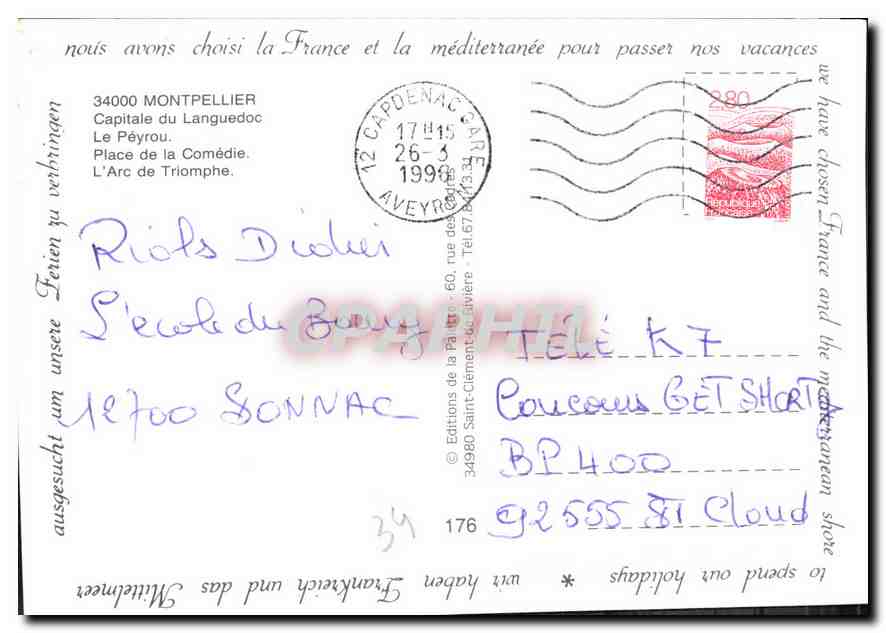 nous avons choisi la France et la méditerranée pour passer nos vacances
34000 MONTPELLIER
Capitale du Languedoc
Le Péyrou.
Place de la Comédie.
L'Arc de Triomphe.
12 CAPDENAC GARE
17H15
26-3
1996
AVEYRON
2,80
République
Française
Riols Didier
L'ecole du Bourg
12700 SONNAC
CPAPHIL
© Editions de la Palette - 60, rue des Cadres
34980 Saint-Clément-de-Rivière - Tél. 67.84.13.31
TÉLÉ K7
Concours GET SHORTY
BP 400
92555 ST Cloud
34
176
we have chosen France and the mediterranean shore
to spend our holidays * wir haben Frankreich und das Mittelmeer
ausgesucht um unsere Ferien zu verbringen